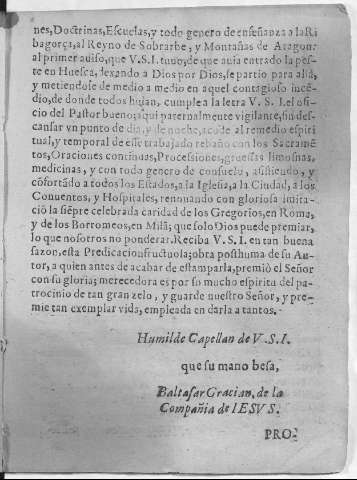 nes,Doctrinas,Escuelas,y todo genero de enſeñanza a la Ri
bagorça,al Reyno de Sobrarbe, y Montañas de Aragon:
al primer auiſo,que V.S.I. tuuo,de que auia entrado la peſ-
te en Hueſca, dexando a Dios por Dios,ſe partio para allà,
y metiendoſe de medio a medio en aquel contagioſo incē-
dio,de donde todos huian, cumple a la letra V. S. I.el ofi-
cio del Paſtor bueno;aqui paternalmente vigilante,ſin deſ-
canſar vn punto de dia,y de noche,acude al remedio eſpiri
tual,y temporal de eſſe trabajado rebaño con los Sacramē-
tos,Oraciones continuas,Proceſsiones,grueſſas limoſnas,
medicinas, y con todo genero de conſuelo, aſsiſtiendo, y
cōfortādo a todos los Eſtados,a la Igleſia,a la Ciudad, a los
Conuentos, y Hoſpitales, renouando con glorioſa imita-
ciō la ſiēpre celebrada caridad de los Gregorios,en Roma,
y de los Borromeos,en Milā; que ſolo Dios puede premiar,
lo que noſotros no ponderar.Reciba V.S.I. en tan buena
ſazon,eſta Predicacion fructuoſa;obra poſthuma de ſu Au-
tor, a quien antes de acabar de eſtamparla,premiò el Señor
con ſu gloria; merecedora es por ſu mucho eſpiritu del pa-
trocinio de tan gran zelo, y guarde nueſtro Señor, y pre-
mie tan exemplar vida, empleada en darla a tantos.
Humilde Capellan de V.S.I.
que ſu mano beſa,
Baltaſar Gracian, de la
Compañia de IESVS.
PRO-